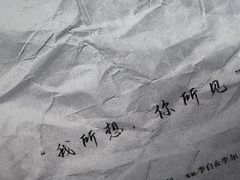 “我所想，你所见”